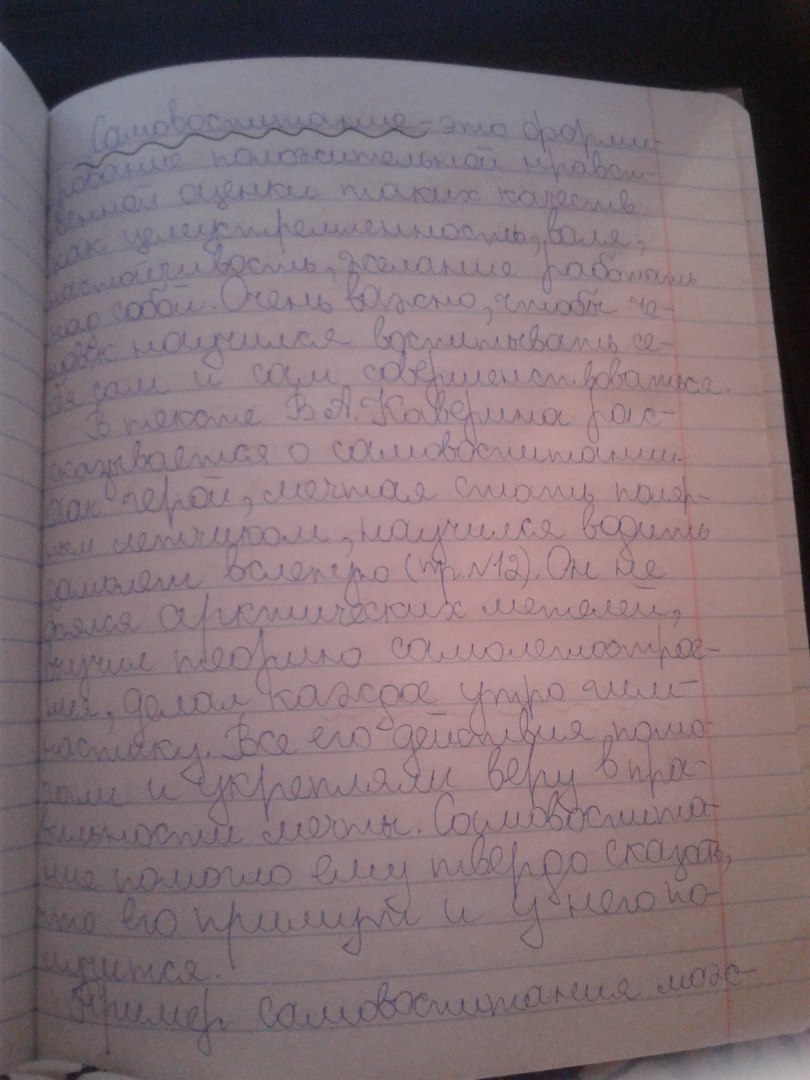 Самовоспитание – это форми-
рование положительной нравст-
венной оценки таких качеств
как целеустремленность, воля,
настойчивость, желание работать
над собой. Очень важно, чтобы че-
ловек научился воспитывать се-
бя сам и сам совершенствоваться.
В тексте В.А. Каверина рас-
сказывается о самовоспитании.
Так герой, мечтая стать поляр-
ным летчиком, научился водить
самолет вслепую (пр. №12). Он не
боялся арктических метелей,
изучил теорию самолетострое-
ния, делал каждое утро гим-
настику. Все его действия помо-
гали и укрепляли веру в пра-
вильности мечты. Самовоспита-
ние помогло ему твердо сказать,
что его примут и у него по-
лучится.
Пример самовоспитания мож-